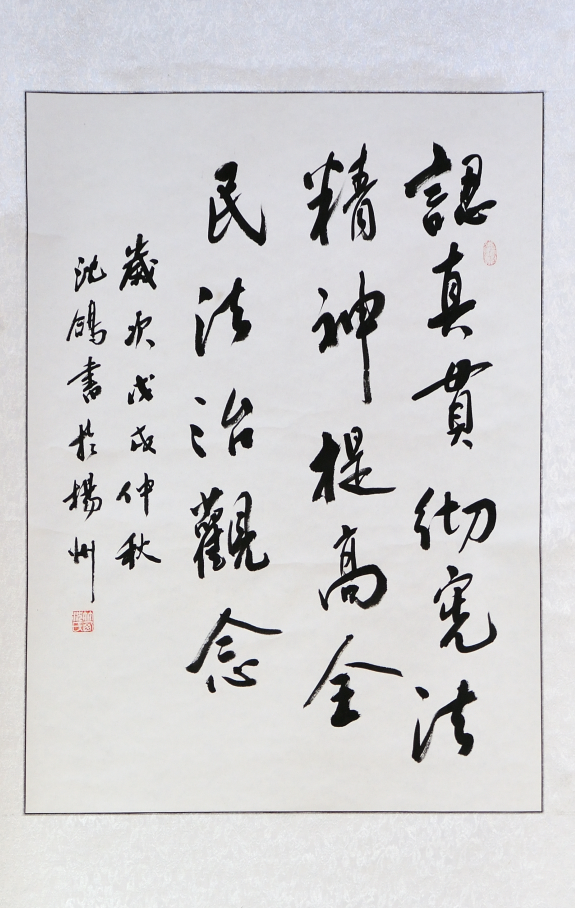 認真貫彻憲法
精神提高全
民法治觀念
歲次戊戌仲秋
沈鴿書於揚州